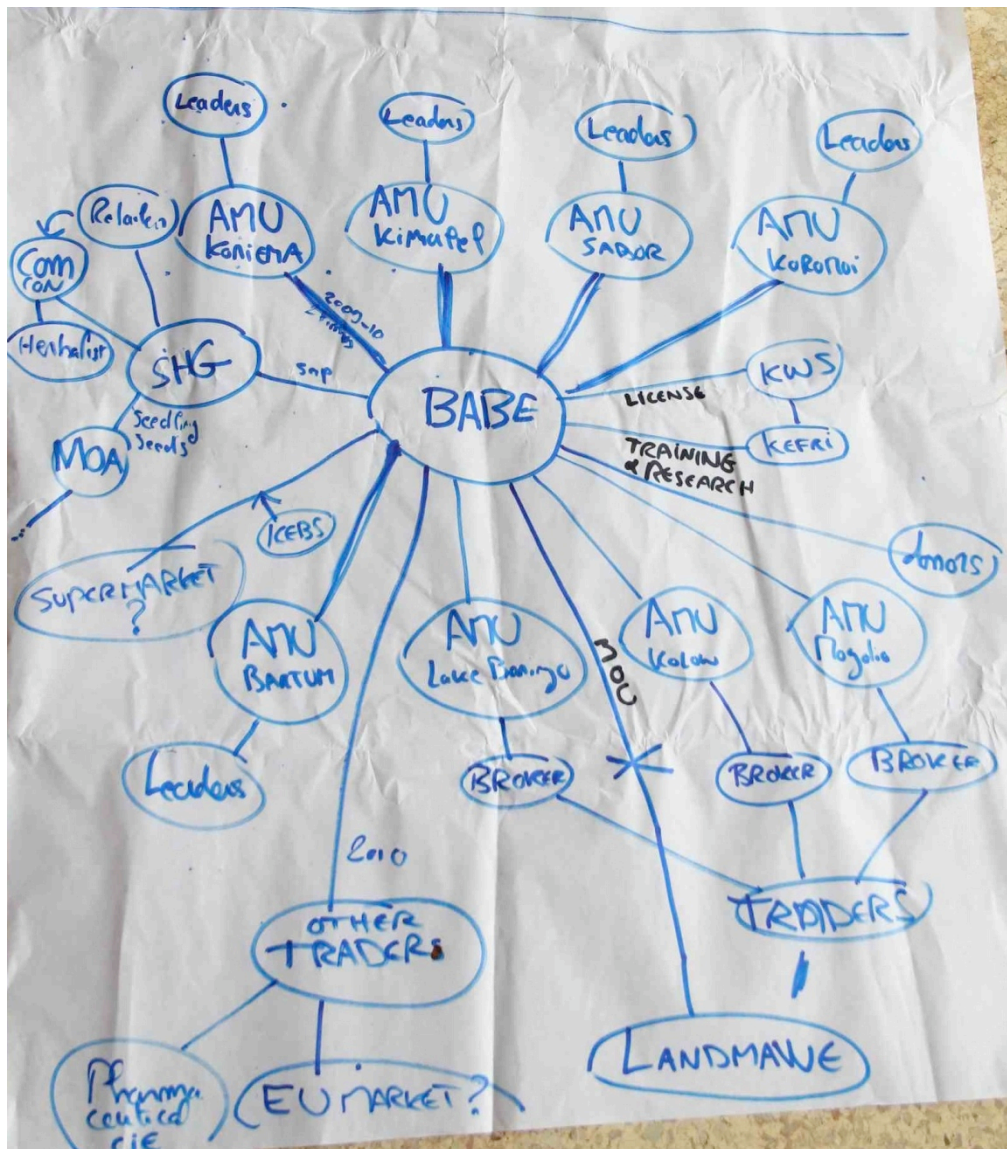 Leaders
Leaders
Leaders
Leaders
AMU
KONIEMA
AMU
Kimapel
AMU
SABOR
AMU
KOROMOI
Com
CON
Herbalist
SHG
sap
2009-10
BABE
LICENSE
KWS
TRAINING
& RESEARCH
KEFRI
Seedling
Seeds
MOA
KEBS
donors
SUPERMARKET
?
AMU
BARTUM
AMU
Lake Baringo
MOU
AMU
Kolow
AMU
Leaders
BROKER
BROKER
BROKER
2010
OTHER
TRADERS
TRADERS
LANDMAWE
Pharma
ceutical
CIE
EU MARKET?